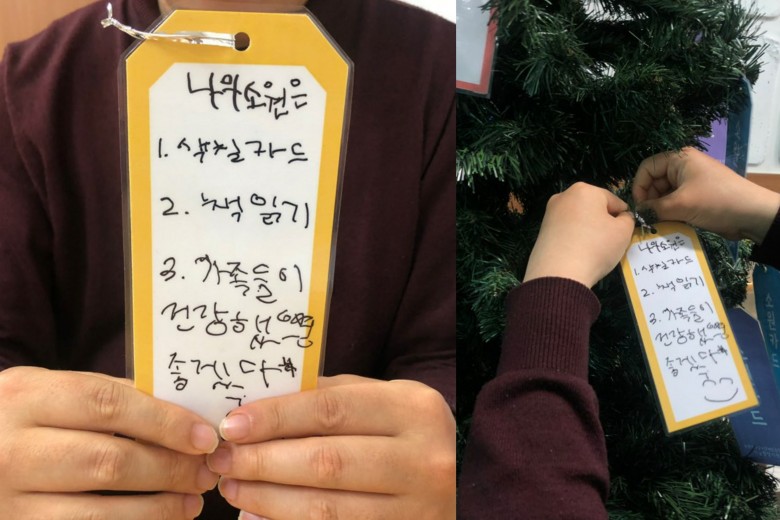 나의 소원은
1. 색칠카드
2. 책 읽기
3. 가족들이
건강했으면
좋겠다
나의 소원은
1. 색칠카드
2. 책 읽기
3. 가족들이
건강했으면
좋겠다
드